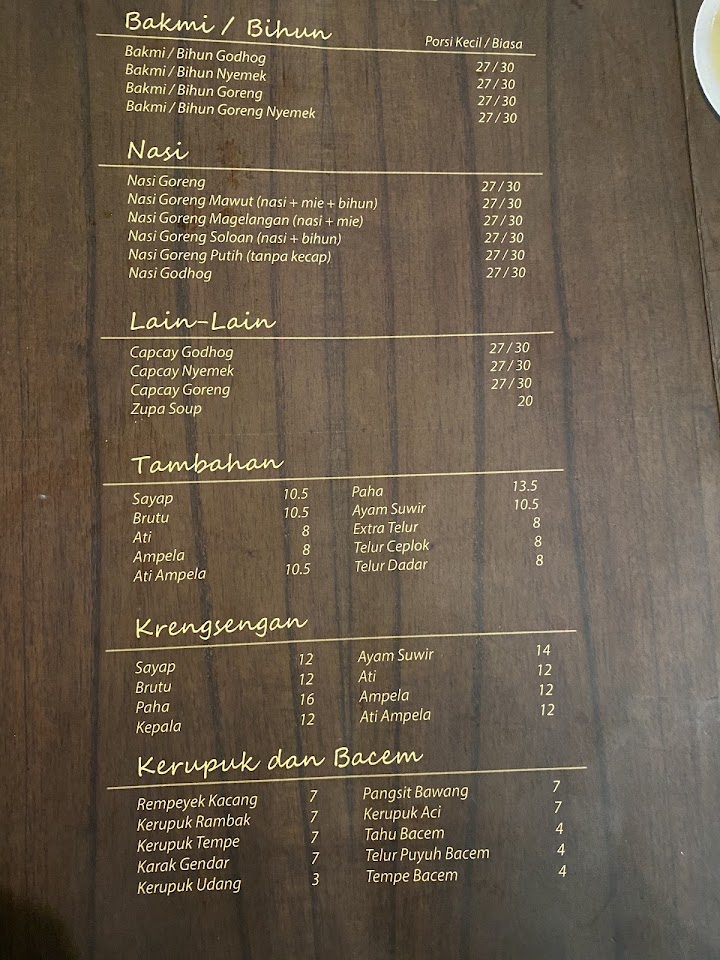 Bakmi / Bihun
Porsi Kecil / Biasa
Bakmi / Bihun Godhog 27 / 30
Bakmi / Bihun Nyemek 27 / 30
Bakmi / Bihun Goreng 27 / 30
Bakmi / Bihun Goreng Nyemek 27 / 30
Nasi
Nasi Goreng 27 / 30
Nasi Goreng Mawut (nasi + mie + bihun) 27 / 30
Nasi Goreng Magelangan (nasi + mie) 27 / 30
Nasi Goreng Soloan (nasi + bihun) 27 / 30
Nasi Goreng Putih (tanpa kecap) 27 / 30
Nasi Godhog 27 / 30
Lain-Lain
Capcay Godhog 27 / 30
Capcay Nyemek 27 / 30
Capcay Goreng 27 / 30
Zupa Soup 20
Tambahan
Sayap 10.5 Paha 13.5
Brutu 10.5 Ayam Suwir 10.5
Ati 8 Extra Telur 8
Ampela 8 Telur Ceplok 8
Ati Ampela 10.5 Telur Dadar 8
Krengsengan
Sayap 12 Ayam Suwir 14
Brutu 12 Ati 12
Paha 16 Ampela 12
Kepala 12 Ati Ampela 12
Kerupuk dan Bacem
Rempeyek Kacang 7 Pangsit Bawang 7
Kerupuk Rambak 7 Kerupuk Aci 7
Kerupuk Tempe 7 Tahu Bacem 4
Karak Gendar 7 Telur Puyuh Bacem 4
Kerupuk Udang 3 Tempe Bacem 4